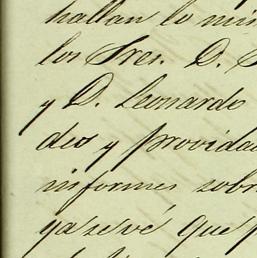 hallan lo mis
los Sres. D.
y D. Leonardo
deo y provida
informes sobr
ya se vé que